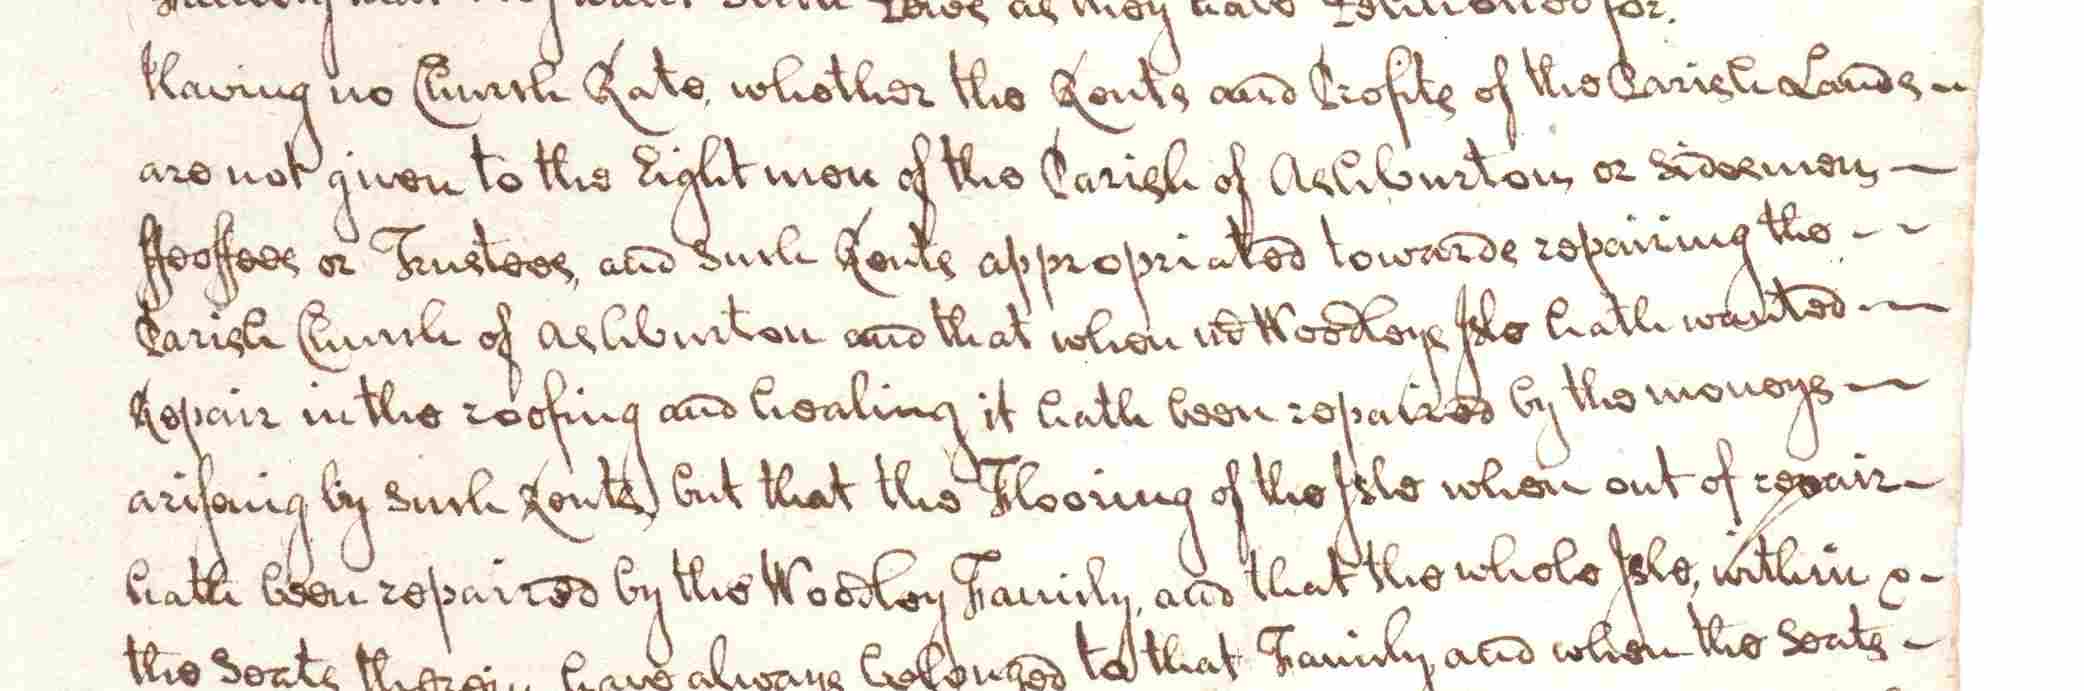 as they have Petitioned for.
Having no Church Rate, whether the Rents and Profits of the Parish Lands
are not given to the Eight men of the Parish of Ashburton or Sidesmen
ffeoffees or Trustees, and such Rents appropriated towards repairing the
Parish Church of Ashburton and that when Woodleys Isle hath wanted
Repair in the roofing and healing it hath been repaired by the moneys
arising by such Rents, but that the Flooring of the Isle when out of repair
hath been repaired by the Woodley Family, and that the whole Isle, within &
the Seats therein have always belonged to that Family and when the Seats